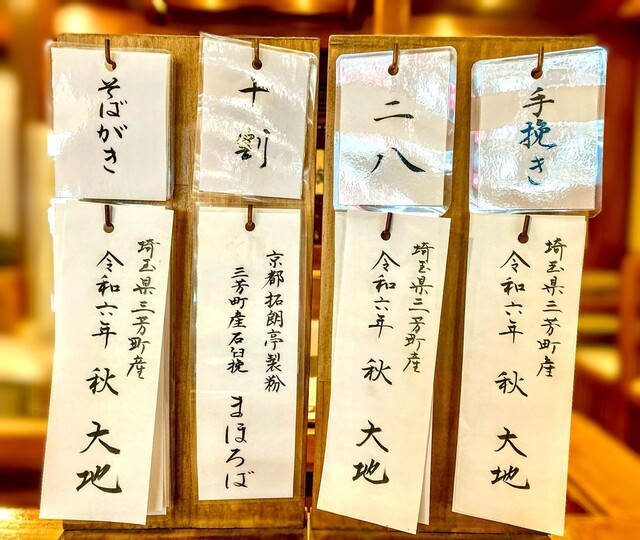 手挽き
埼玉県三芳町産
令和六年 秋 大地
二八
埼玉県三芳町産
令和六年 秋 大地
十割
京都拓朗亭製粉
三芳町産石臼挽
まほろば
そばがき
埼玉県三芳町産
令和六年 秋 大地